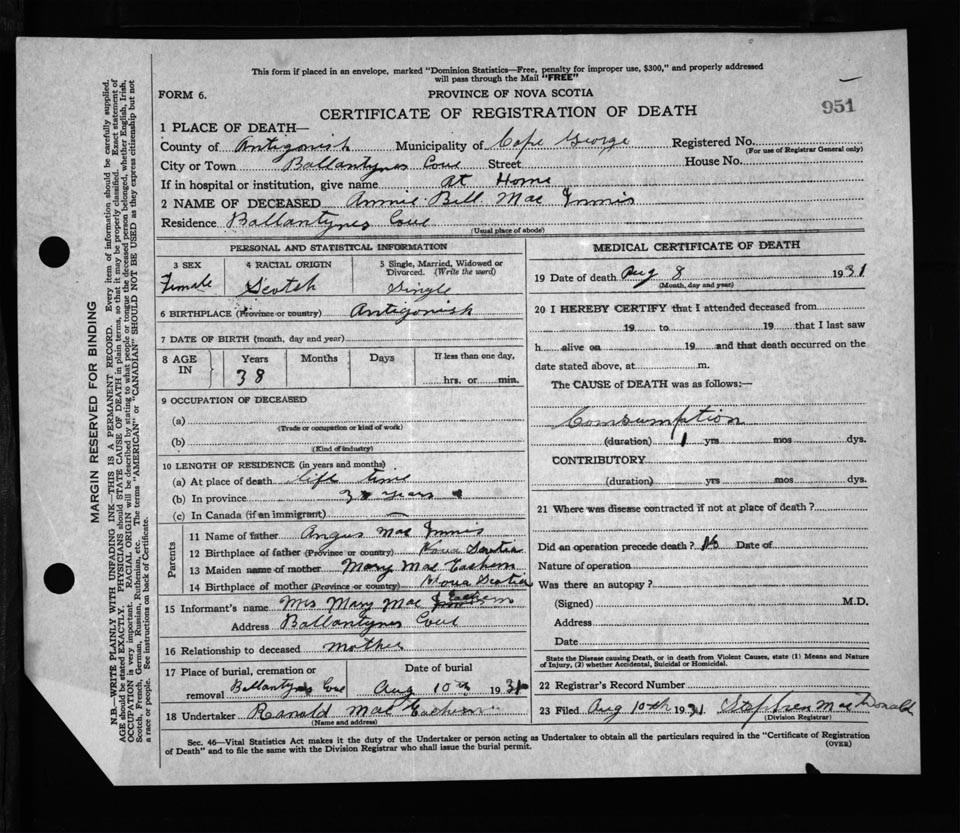 This form if placed in an envelope, marked "Dominion Statistics—Free, penalty for improper use, $300," and properly addressed
will pass through the Mail "FREE"
FORM 6.
PROVINCE OF NOVA SCOTIA
951
CERTIFICATE OF REGISTRATION OF DEATH
1 PLACE OF DEATH—
County of Antigonish Municipality of Cape George Registered No.
(For use of Registrar General only)
City or Town Ballantynes Cove Street House No.
If in hospital or institution, give name at Home
2 NAME OF DECEASED Annie Bell Mac Innis
Residence Ballantynes Cove
(Usual place of abode)
PERSONAL AND STATISTICAL INFORMATION
3 SEX 4 RACIAL ORIGIN 5 Single, Married, Widowed or
Divorced. (Write the word)
Female Scotch Single
6 BIRTHPLACE (Province or country) Antigonish
7 DATE OF BIRTH (month, day and year)
8 AGE IN Years Months Days If less than one day,
38 hrs. or min.
9 OCCUPATION OF DECEASED
(a)
(Trade or occupation or kind of work)
(b)
(Kind of industry)
10 LENGTH OF RESIDENCE (in years and months)
(a) At place of death life time
(b) In province years
(c) In Canada (if an immigrant) —
Parents
11 Name of father Angus Mac Innis
12 Birthplace of father (Province or country) Nova Scotia
13 Maiden name of mother Mary Mac Eachern
14 Birthplace of mother (Province or country) Nova Scotia
15 Informant's name Mrs Mary Mac Eachern
Address Ballantynes Cove
16 Relationship to deceased mother
17 Place of burial, cremation or Date of burial
removal Ballantynes Cove Aug 10th 1931
18 Undertaker Ranald Mac Eachern
(Name and address)
MEDICAL CERTIFICATE OF DEATH
19 Date of death Aug 8 1931
(Month, day and year)
20 I HEREBY CERTIFY that I attended deceased from
19 to 19 that I last saw
h alive on 19 and that death occurred on the
date stated above, at m.
The CAUSE of DEATH was as follows:—
Consumption
(duration) 1 yrs mos dys.
CONTRIBUTORY
(duration) yrs mos dys.
21 Where was disease contracted if not at place of death?
Did an operation precede death? No Date of
Nature of operation
Was there an autopsy?
(Signed) M.D.
Address
Date
State the Disease causing Death, or in death from Violent Causes, state (1) Means and Nature
of Injury, (2) whether Accidental, Suicidal or Homicidal.
22 Registrar's Record Number
23 Filed Aug 10th 1931 Stephen MacDonald
(Division Registrar)
Sec. 46—Vital Statistics Act makes it the duty of the Undertaker or person acting as Undertaker to obtain all the particulars required in the "Certificate of Registration
of Death" and to file the same with the Division Registrar who shall issue the burial permit.
(OVER)
MARGIN RESERVED FOR BINDING
N.B.—WRITE PLAINLY WITH UNFADING INK—THIS IS A PERMANENT RECORD. Every item of information should be carefully supplied.
AGE should be stated EXACTLY. PHYSICIANS should STATE CAUSE OF DEATH in plain terms, so that it may be properly classified. Exact statement of
OCCUPATION is very important. RACIAL ORIGIN will be described by stating to what people or tongue the deceased person belonged, whether English, Irish,
Scotch, French, German, Russian, Ruthenian, etc. The terms "AMERICAN" or "CANADIAN" SHOULD NOT BE USED as they express citizenship but not
a race or people. See instructions on back of Certificate.